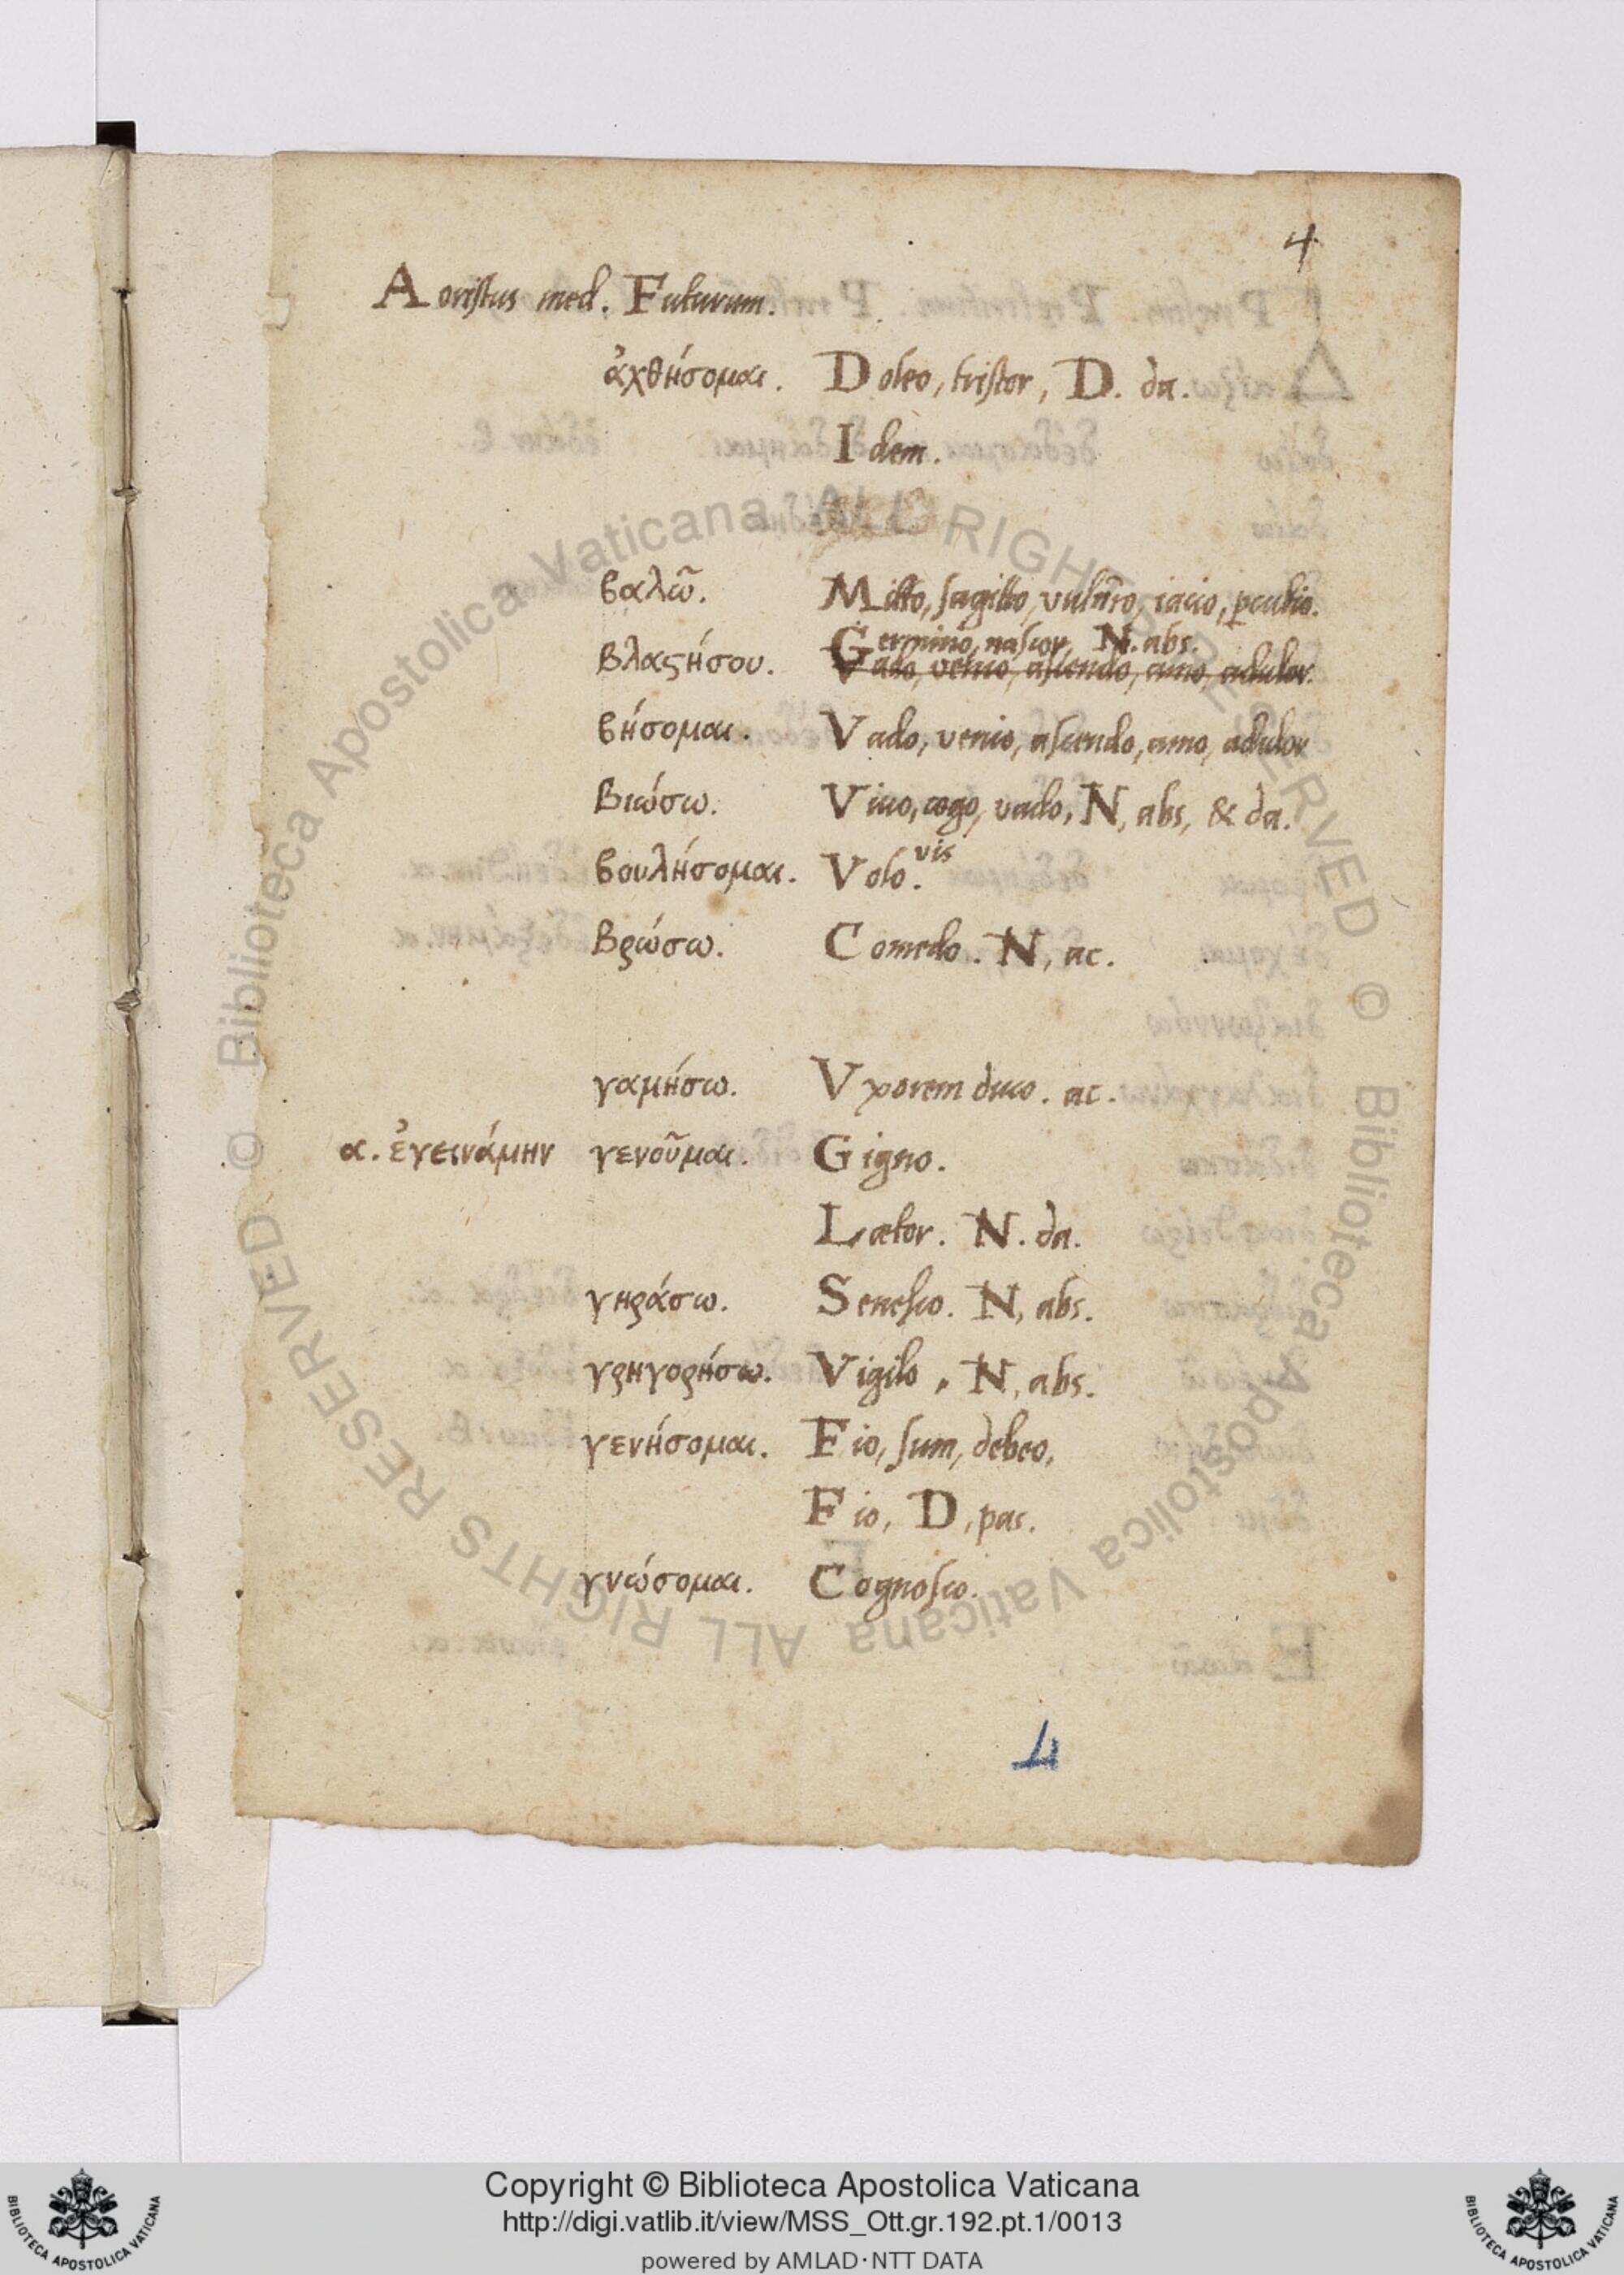 4
Aoristus med. Futurum.
ἀχθήσομαι. Doleo, tristor, D. da.
Idem.
βαλῶ. Mitto, sagitto, vulnero, iacio, pcutio.
Germino, nascor, N. abs.
βλαϛήσου. Vado, venio, ascendo, amo, adulor.
βήσομαι. Vado, venio, ascendo, amo, adulor
βιώσω. Vivo, cogo, vado, N, abs, & da.
βουλήσομαι. Volo. vis
βρώσω. Comedo. N, ac.
γαμήσω. Vxorem duco. ac.
α. ἐγεινάμην γενοῦμαι. Gigno.
Lætor. N. da.
γηράσω. Senesco. N, abs.
γρηγορήσω. Vigilo, N, abs.
γενήσομαι. Fio, sum, debeo,
Fio, D, pas.
γνώσομαι. Cognosco.
4
© Biblioteca Apostolica Vaticana ALL RIGHTS RESERVED © Biblioteca Apostolica Vaticana ALL RIGHTS RESERVED
Copyright © Biblioteca Apostolica Vaticana
http://digi.vatlib.it/view/MSS_Ott.gr.192.pt.1/0013
powered by AMLAD·NTT DATA
BIBLIOTECA APOSTOLICA VATICANA
BIBLIOTECA APOSTOLICA VATICANA